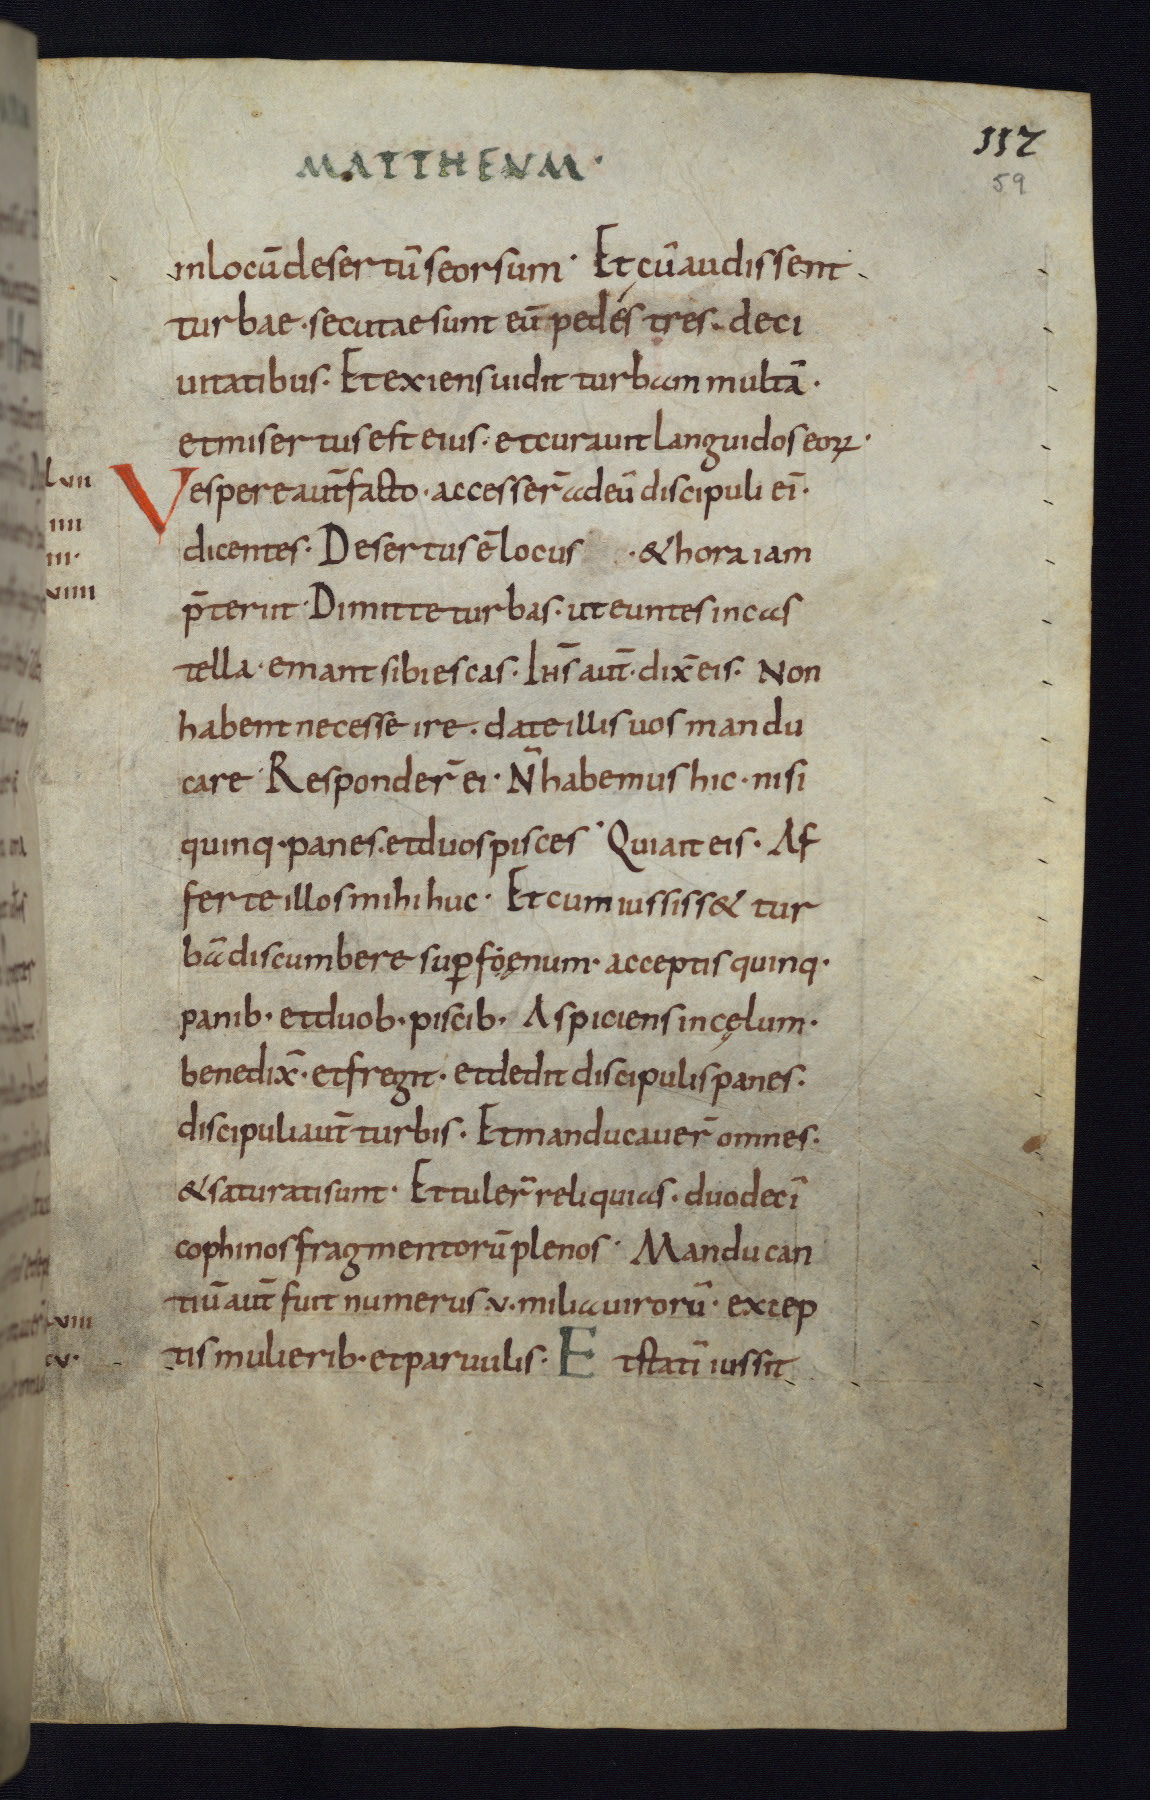 MATTHEUM·
117
59
in locū desertū seorsum· Et cū audissent
turbae· secutae sunt eū pedes tres· de ci
uitatibus· Et exiens uidit turbam multā·
et misertus est eius· et curauit languidos eoꝝ·
lvii
Vespere aut̄ facto· accesser̄ ad eū discipuli ei̅·
iiii
dicentes· Desertus ē locus · & hora iam
iii·
viiii
p̄teriit· Dimitte turbas· ut euntes in cas
tella· emant sibi escas· Ihs̄ aut̄· dix̄ eis· Non
habent necesse ire· date illis uos mandu
care· Responder̄ ei· N̄ habemus hic· nisi
quinq· panes· et duos pisces· Qui ait eis· Af
ferte illos mihi huc· Et cum iussiss& tur
bā discumbere suꝑ foęnum· acceptis quinq·
panib· et duob· piscib· Aspiciens in cęlum·
benedix̄· et fregit· et dedit discipulis panes·
discipuli aut̄ turbis· Et manducauer̄ omnes·
& saturati sunt· Et tuler̄ reliquias· duodecī
cophinos fragmentorū plenos· Manducan
tiū aut̄ fuit numerus ·v· milia uirorū· excep
viii
tis mulierib· et paruulis· Et statī iussit
cv·